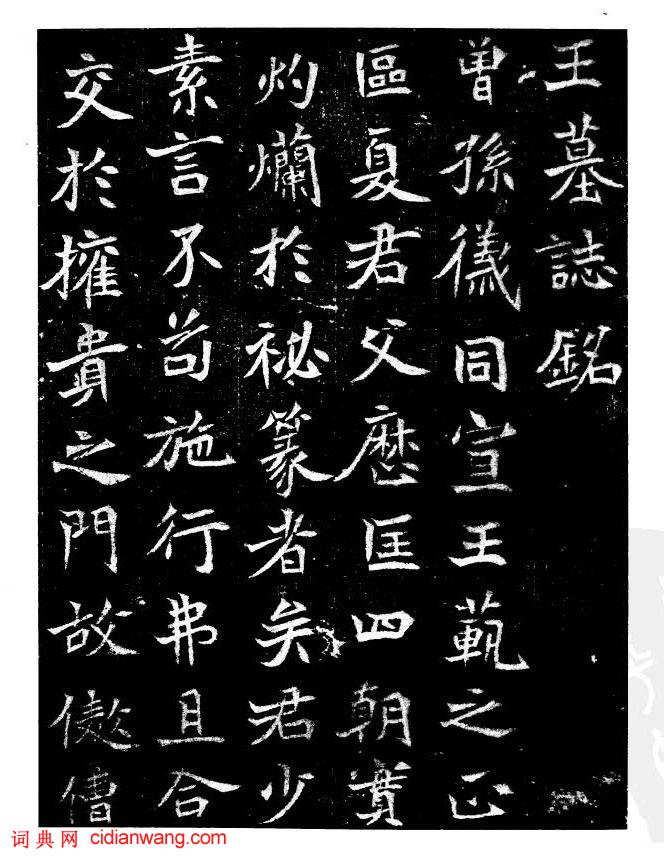 王墓誌銘
曾孫儀同宣王範之正
區夏君父歷匡四朝實
灼爛於秘篆者矣君少
素言不苟施行弗且合
交於擁貴之門故傲僧
词典网 cidianwang.com